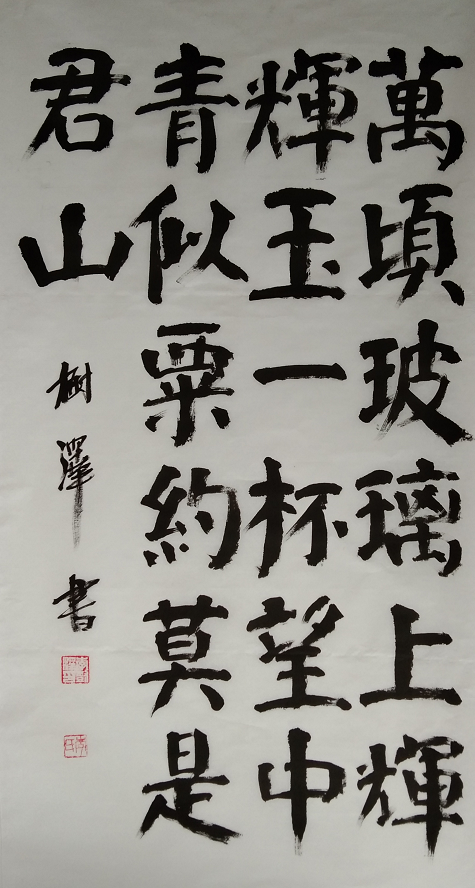 萬頃玻璃上輝
輝玉一杯望中
青似粟約莫是
君山
樹澤書